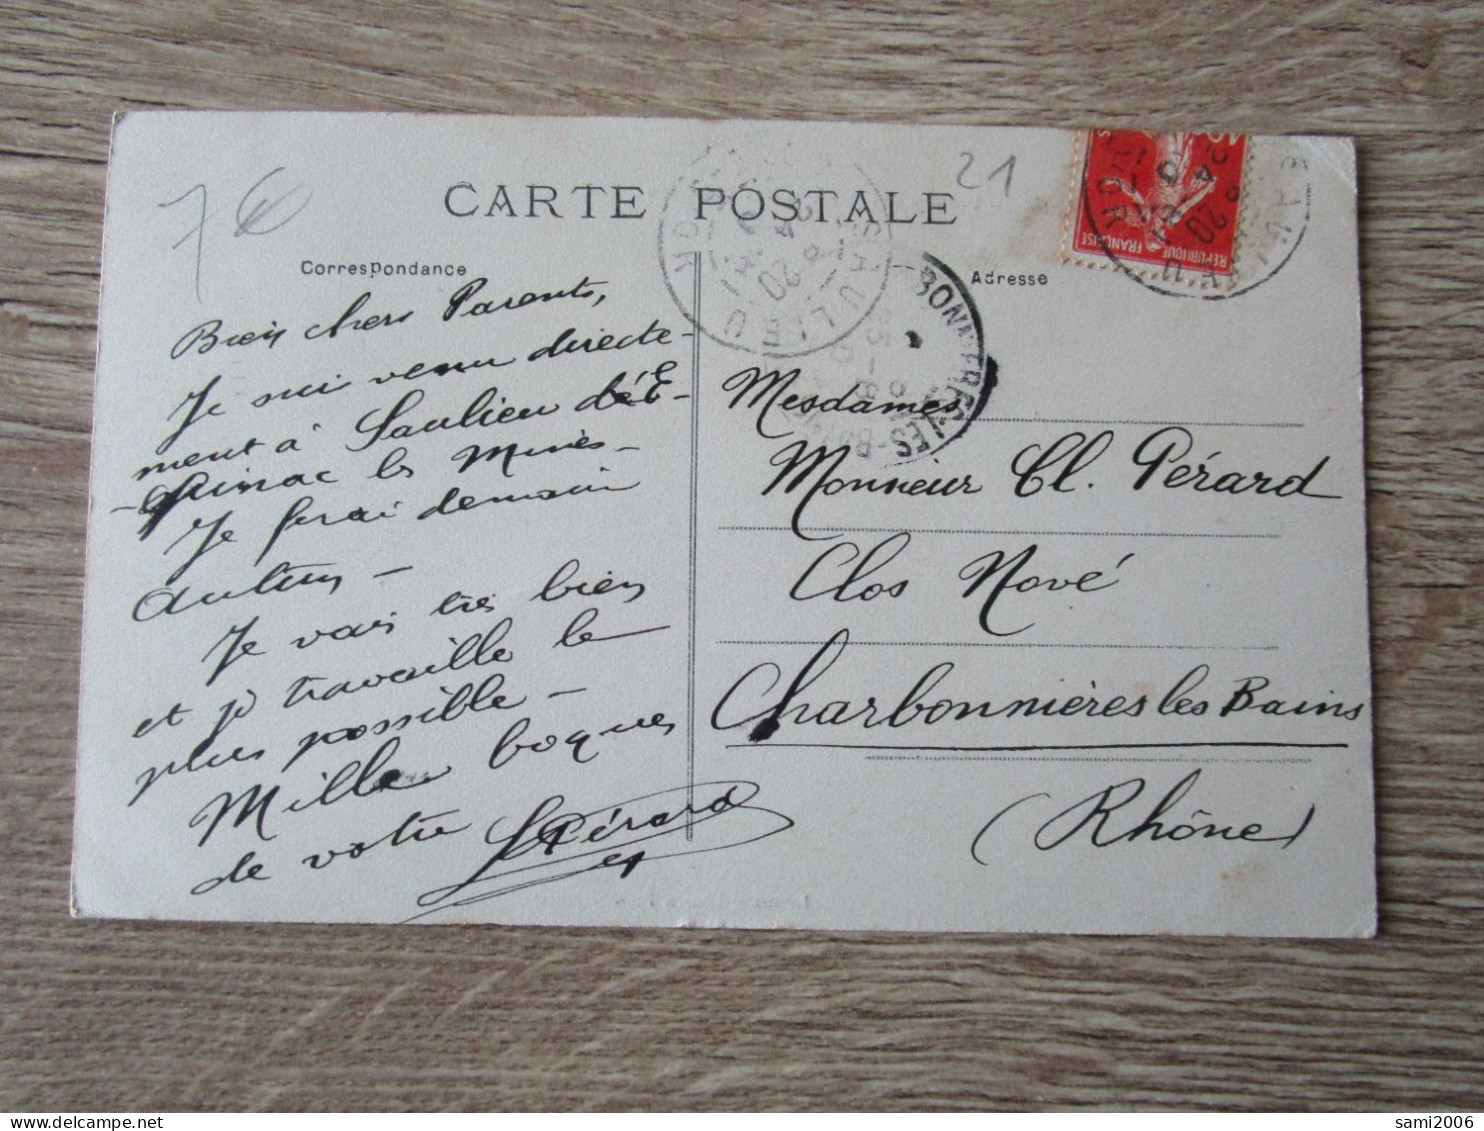 7€
21
CARTE POSTALE
Correspondance
Adresse
SAULIEU
REPUBLIQUE FRANÇAISE
SAULIEU
Bien chers Parents,
Je suis venu directe-
ment à Saulieu d'É-
-pinac les Mines-
Je serai demain
Autun -
Je vais très bien
et je travaille le
plus possible -
Mille
de votre Pérard
Mesdames
Monsieur Cl. Pérard
Clos Nové
Charbonnières les Bains
(Rhône)
sami2006